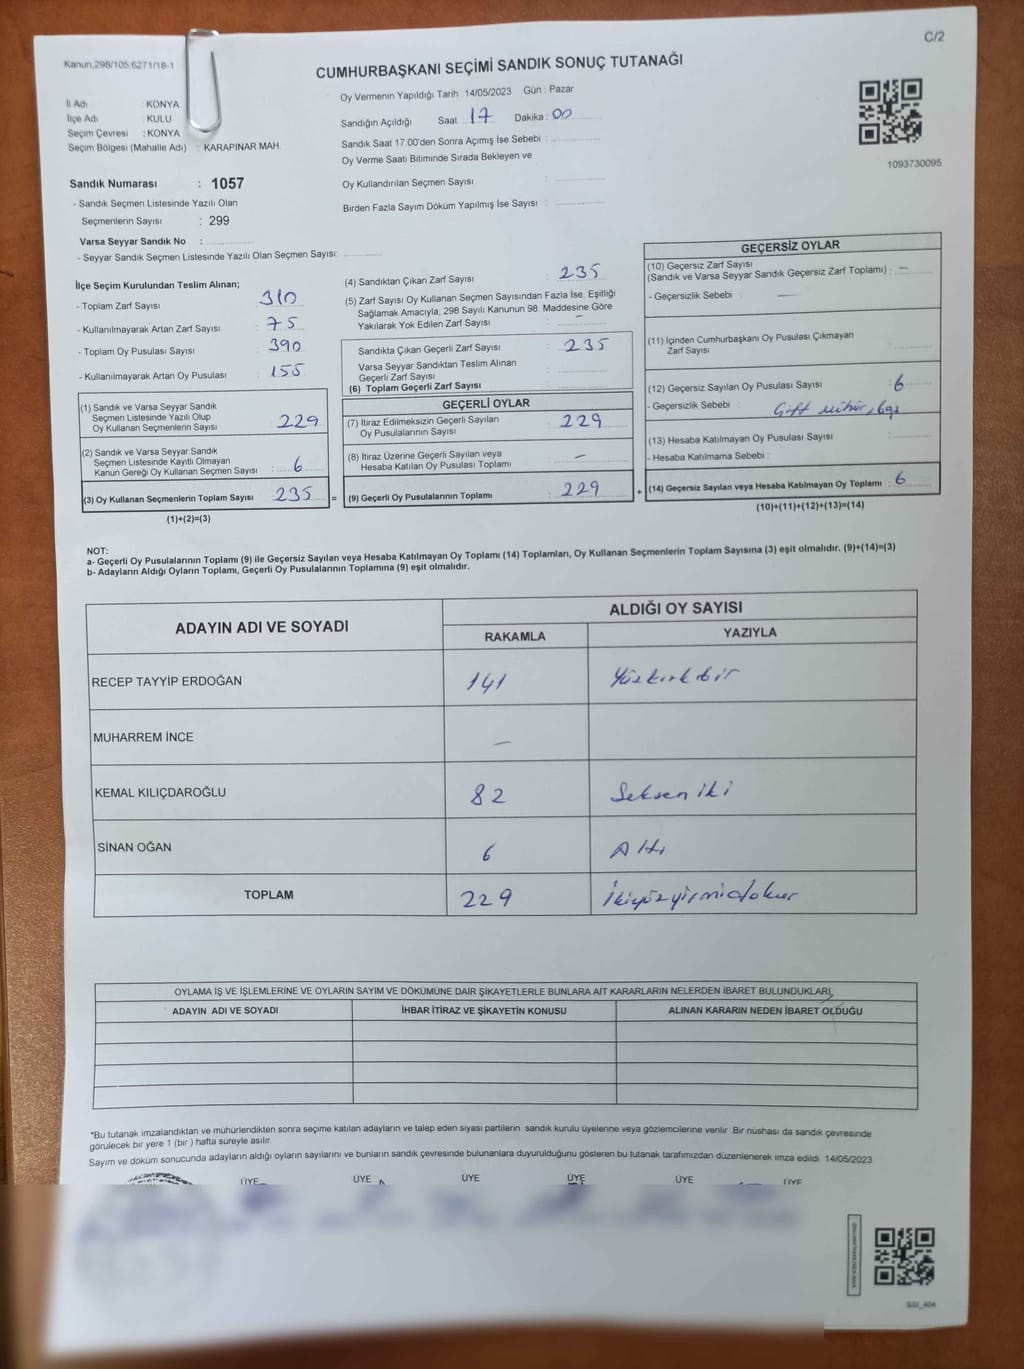 C/2
Kanun:298/105;6271/18-1
CUMHURBAŞKANI SEÇİMİ SANDIK SONUÇ TUTANAĞI
Oy Vermenin Yapıldığı Tarih :14/05/2023 Gün : Pazar
İl Adı : KONYA
İlçe Adı : KULU
Seçim Çevresi : KONYA
Seçim Bölgesi (Mahalle Adı) : KARAPINAR MAH.
Sandığın Açıldığı Saat : 17 Dakika : 00
Sandık Saat 17:00'den Sonra Açımış İse Sebebi :
Oy Verme Saati Bitiminde Sırada Bekleyen ve
Oy Kullandırılan Seçmen Sayısı :
Birden Fazla Sayım Döküm Yapılmış İse Sayısı :
1093730095
Sandık Numarası : 1057
- Sandık Seçmen Listesinde Yazılı Olan
Seçmenlerin Sayısı : 299
Varsa Seyyar Sandık No :
- Seyyar Sandık Seçmen Listesinde Yazılı Olan Seçmen Sayısı:
İlçe Seçim Kurulundan Teslim Alınan;
- Toplam Zarf Sayısı : 310
- Kullanılmayarak Artan Zarf Sayısı : 75
- Toplam Oy Pusulası Sayısı : 390
- Kullanılmayarak Artan Oy Pusulası : 155
(1) Sandık ve Varsa Seyyar Sandık
Seçmen Listesinde Yazılı Olup
Oy Kullanan Seçmenlerin Sayısı : 229
(2) Sandık ve Varsa Seyyar Sandık
Seçmen Listesinde Kayıtlı Olmayan
Kanun Gereği Oy Kullanan Seçmen Sayısı : 6
(3) Oy Kullanan Seçmenlerin Toplam Sayısı : 235 =
(1)+(2)=(3)
(4) Sandıktan Çıkan Zarf Sayısı : 235
(5) Zarf Sayısı Oy Kullanan Seçmen Sayısından Fazla İse, Eşitliği
Sağlamak Amacıyla, 298 Sayılı Kanunun 98. Maddesine Göre
Yakılarak Yok Edilen Zarf Sayısı : –
Sandıkta Çıkan Geçerli Zarf Sayısı : 235
Varsa Seyyar Sandıktan Teslim Alınan
Geçerli Zarf Sayısı :
(6) Toplam Geçerli Zarf Sayısı :
GEÇERLİ OYLAR
(7) İtiraz Edilmeksizin Geçerli Sayılan
Oy Pusulalarının Sayısı : 229
(8) İtiraz Üzerine Geçerli Sayılan veya
Hesaba Katılan Oy Pusulası Toplamı : –
(9) Geçerli Oy Pusulalarının Toplamı : 229 +
GEÇERSİZ OYLAR
(10) Geçersiz Zarf Sayısı
(Sandık ve Varsa Seyyar Sandık Geçersiz Zarf Toplamı) : –
- Geçersizlik Sebebi : —
(11) İçinden Cumhurbaşkanı Oy Pusulası Çıkmayan
Zarf Sayısı :
(12) Geçersiz Sayılan Oy Pusulası Sayısı : 6
- Geçersizlik Sebebi : Çift mühür,
(13) Hesaba Katılmayan Oy Pusulası Sayısı :
- Hesaba Katılmama Sebebi :
(14) Geçersiz Sayılan veya Hesaba Katılmayan Oy Toplamı : 6
(10)+(11)+(12)+(13)=(14)
NOT:
a- Geçerli Oy Pusulalarının Toplamı (9) ile Geçersiz Sayılan veya Hesaba Katılmayan Oy Toplamı (14) Toplamları, Oy Kullanan Seçmenlerin Toplam Sayısına (3) eşit olmalıdır. (9)+(14)=(3)
b- Adayların Aldığı Oyların Toplamı, Geçerli Oy Pusulalarının Toplamına (9) eşit olmalıdır.
ADAYIN ADI VE SOYADI ALDIĞI OY SAYISI
RAKAMLA YAZIYLA
RECEP TAYYİP ERDOĞAN 141 Yüzkırkbir
MUHARREM İNCE –
KEMAL KILIÇDAROĞLU 82 Seksen iki
SİNAN OĞAN 6 Altı
TOPLAM 229 İkiyüzyirmidokuz
OYLAMA İŞ VE İŞLEMLERİNE VE OYLARIN SAYIM VE DÖKÜMÜNE DAİR ŞİKAYETLERLE BUNLARA AİT KARARLARIN NELERDEN İBARET BULUNDUKLARI,
ADAYIN ADI VE SOYADI İHBAR İTİRAZ VE ŞİKAYETİN KONUSU ALINAN KARARIN NEDEN İBARET OLDUĞU
*Bu tutanak imzalandıktan ve mühürlendikten sonra seçime katılan adayların ve talep eden siyasi partilerin sandık kurulu üyelerine veya gözlemcilerine verilir. Bir nüshası da sandık çevresinde
görülecek bir yere 1 (bir ) hafta süreyle asılır.
Sayım ve döküm sonucunda adayların aldığı oyların sayılarını ve bunların sandık çevresinde bulunanlara duyurulduğunu gösteren bu tutanak tarafımızdan düzenlenerek imza edildi. 14/05/2023
ÜYE ÜYE ÜYE ÜYE ÜYE ÜYE
SSI_404